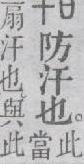 防汗也。此當
扇汗也與此